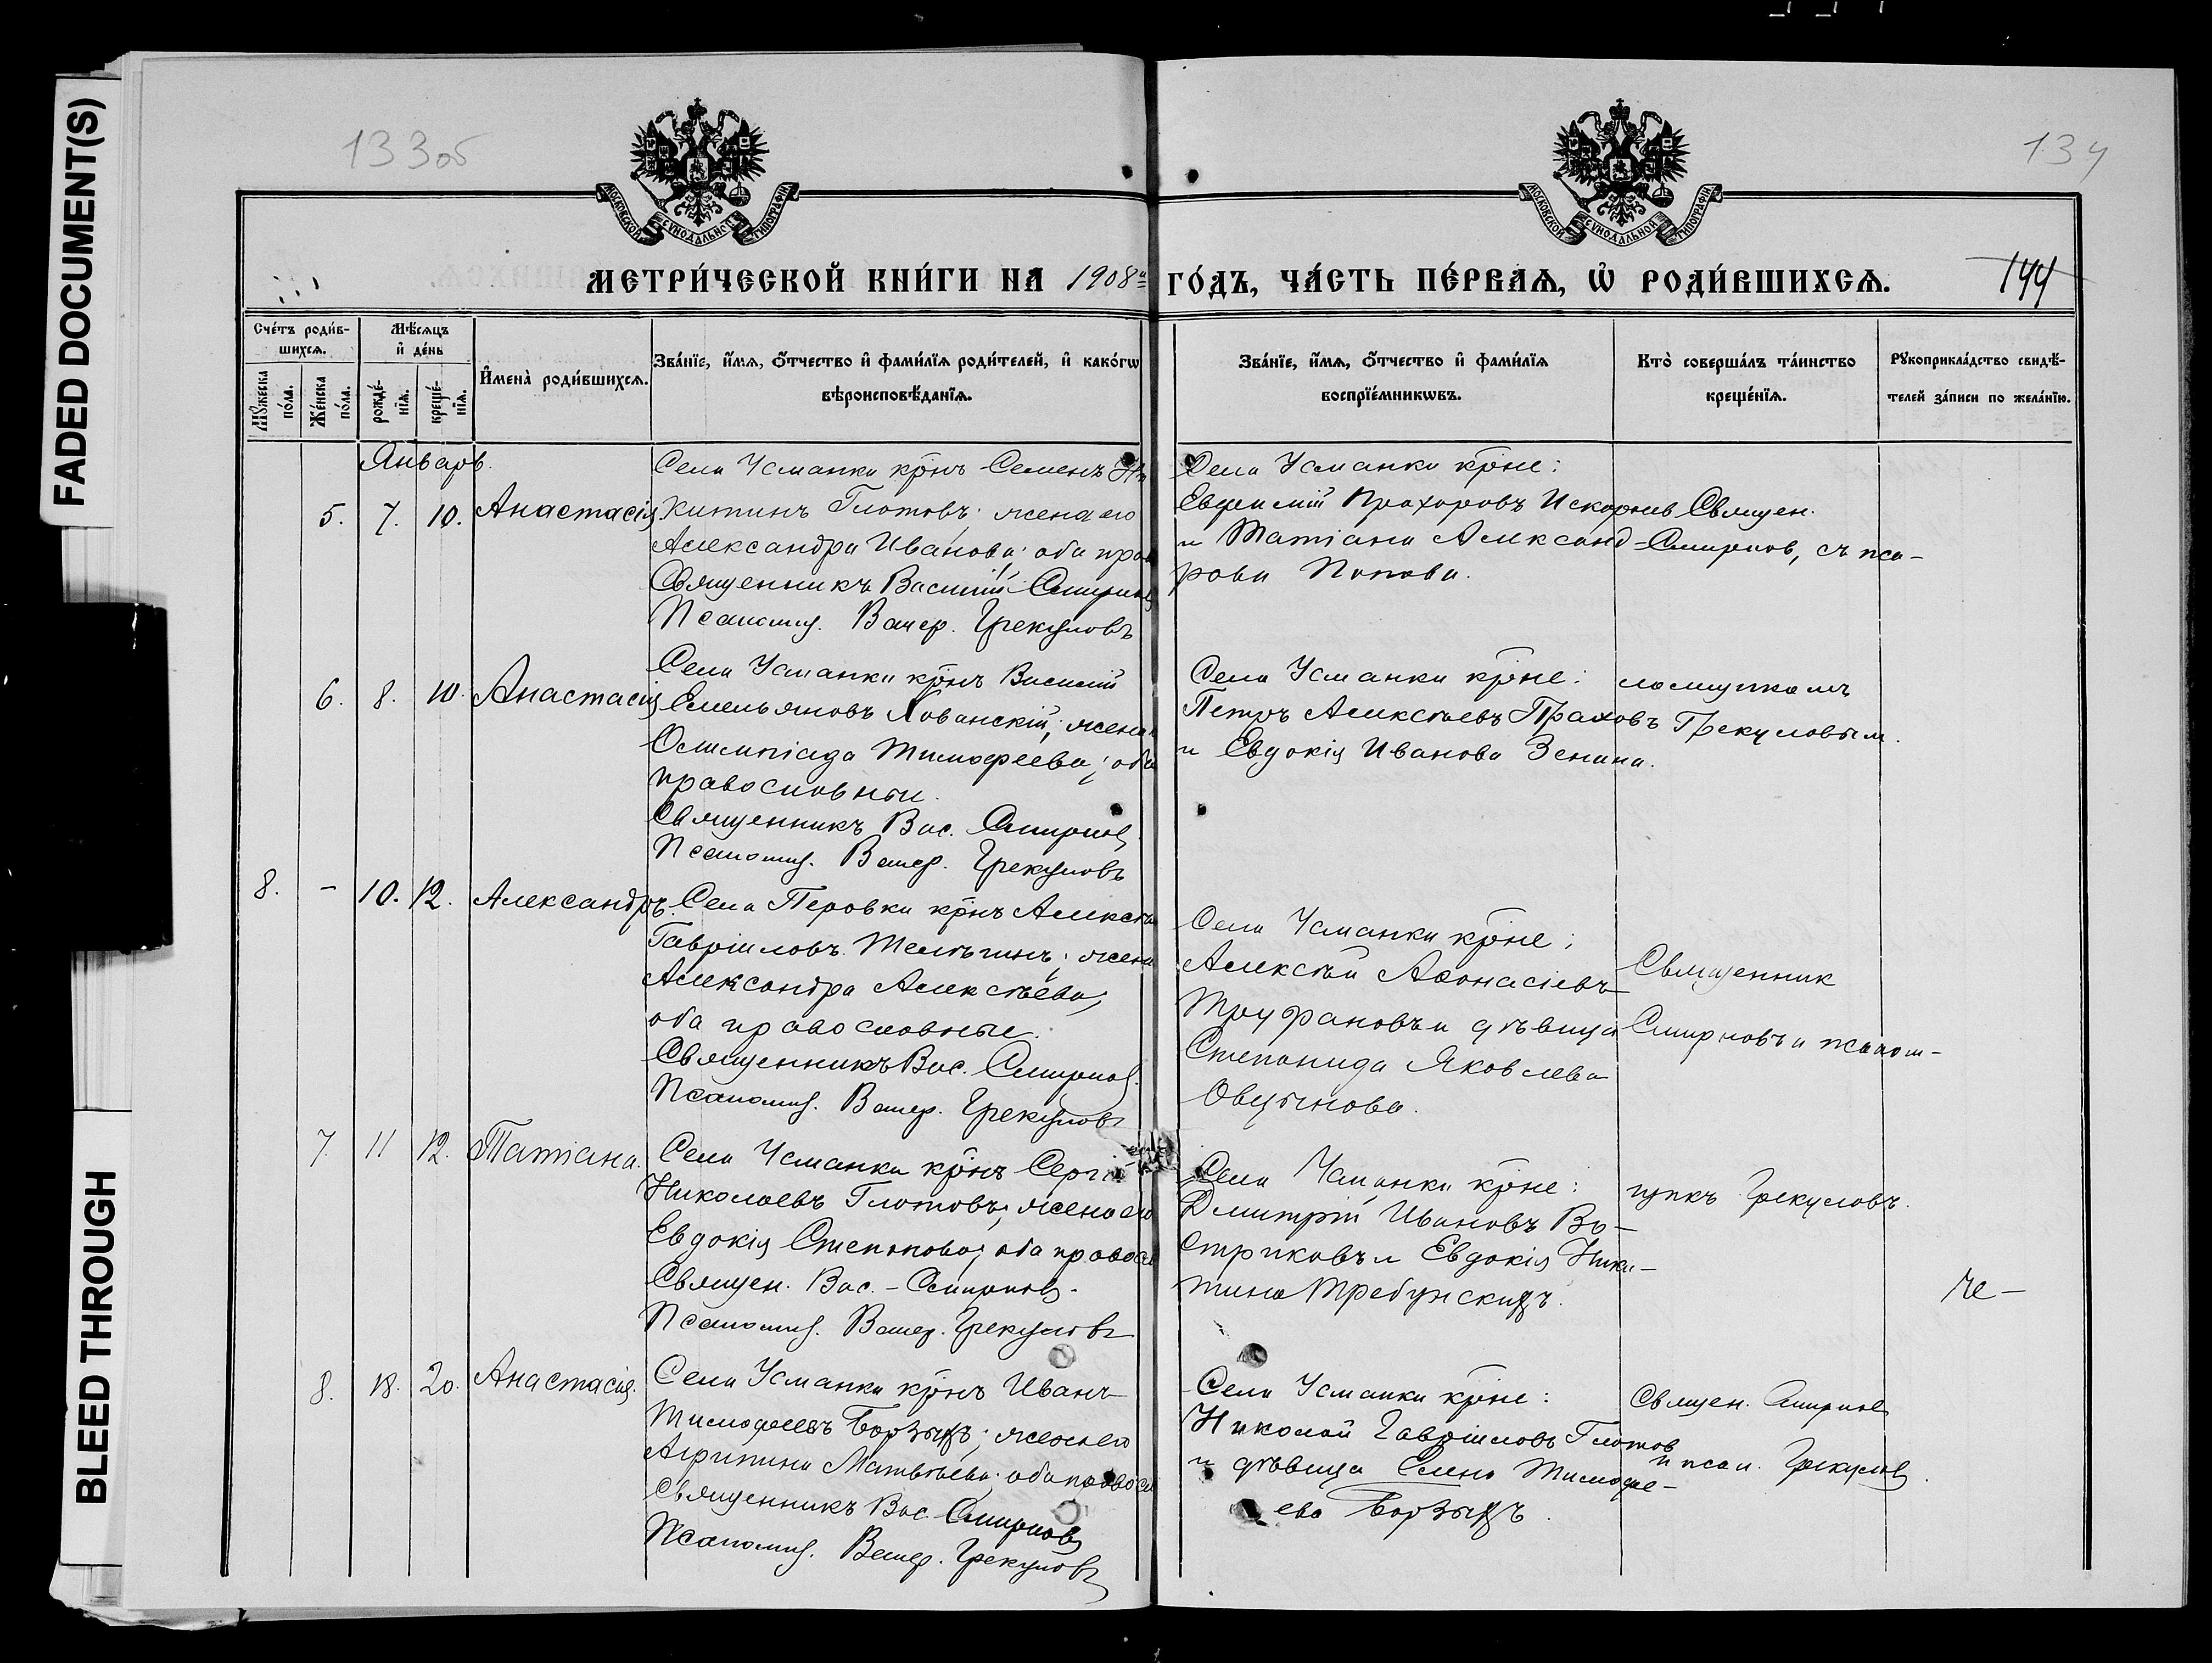 FADED DOCUMENT(S)
BLEED THROUGH
133об
134
МОСКОВСКОЙ СѴНОДАЛЬНОЙ ТИПОГРАФІИ
МОСКОВСКОЙ СѴНОДАЛЬНОЙ ТИПОГРАФІИ
МЕТРИ́ЧЕСКОЙ КНИ́ГИ НА 1908й ГО́ДЪ, ЧА́СТЬ ПЕ́РВАѦ, Ѡ҆ РОДИ́ВШИХСѦ.
144
Сче́тъ роди́в-
шихсѧ.
Мꙋ́жеска
по́ла.
Же́нска
по́ла.
Мѣ́сѧцъ
и҆ де́нь
рожде́-
нїѧ.
креще́-
нїѧ.
И҆мена̀ роди́вшихсѧ.
Зва́нїе, и҆́мѧ, ѻ҆́тчество и҆ фами́лїѧ роди́телей, и҆ како́гѡ
вѣроисповѣ́данїѧ.
Зва́нїе, и҆́мѧ, ѻ҆́тчество и҆ фами́лїѧ
воспрїе́мникѡвъ.
Кто̀ соверша́лъ та́инство
креще́нїѧ.
Рꙋкоприкла́дство свидѣ́-
телей за́писи по жела́нїю.
Январь.
5. 7. 10. Анастасія
Села Усманки крнъ Семенъ Ни
китинъ Глотовъ; жена его
Александра Иванова; оба прав
Священникъ Василій Смирнов
Псаломщ. Валер. Грекуловъ
Села Усманки крне:
Евфимій Прохоровъ
и Татіана Александ-
рова Попова.
Священ.
Смирнов, съ пса-
6. 8. 10. Анастасія
Села Усманки крнъ Василій
Емельяновъ Лованскій; жена
Олимпіада Тимофеева; оба
православные.
Священникъ Вас. Смирнов
Псаломщ. Валер. Грекуловъ
Села Усманки крне:
Петръ Алексѣевъ Праховъ
и Евдокія Иванова Зенина.
ломщикомъ
Грекуловым.
8. - 10. 12. Александръ.
Села Перовки крнъ Алексѣй
Гавріиловъ Телѣгинъ; жена
Александра Алексѣева;
оба православные.
Священникъ Вас. Смирнов.
Псаломщ. Валер. Грекуловъ
Села Усманки крне;
Алексѣй Афонасіевъ
Труфановъ и дѣвица
Степанида Яковлева
Овцынова.
Священник
Смирновъ и псалом-
7. 11 12. Татіана.
Села Усманки крнъ Сергій
Николаевъ Глотовъ; жена его
Евдокія Степанова; оба правосл
Священ. Вас. - Смирновъ.
Псаломщ. Валер. Грекуловъ
Села Усманки крне:
Дмитрій Ивановъ Во-
стриковъ и Евдокія Ники-
тина Требунскихъ.
щикъ Грекуловъ.
8. 18. 20. Анастасія.
Села Усманки крнъ Иванъ
Тимофеевъ Борзыхъ; жена его
Агрипина Матвѣева; оба правосл
Священникъ Вас. Смирнов
Псаломщ. Валер. Грекуловъ
Села Усманки крне:
Николай Гавріиловъ Глотов
и дѣвица Елена Тимофе-
ева Борзыхъ.
Священ. Смирнов
и псал. Грекулов.